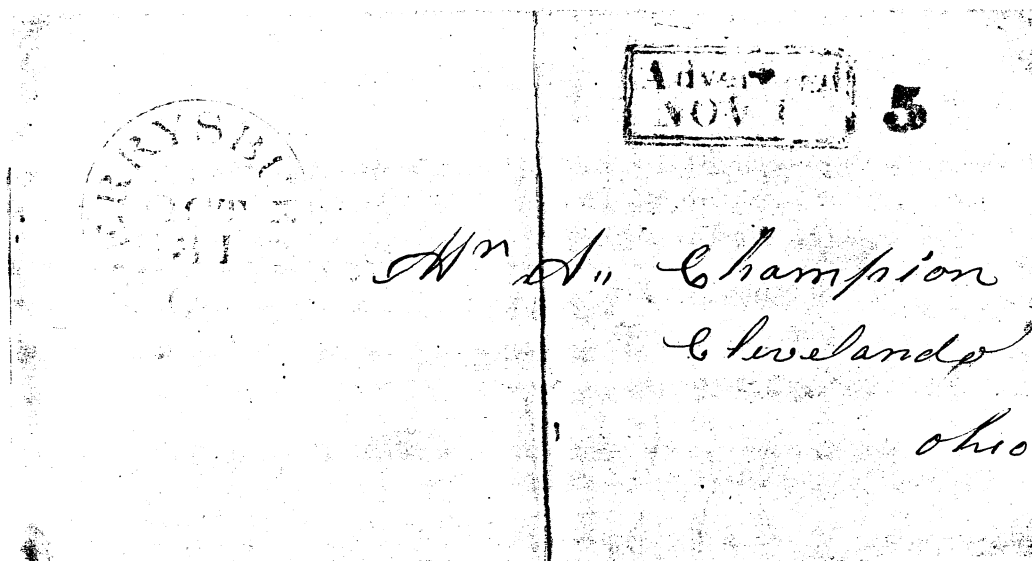 Advertised
NOV
5
OCT
Mr A„ Champion
Cleveland
Ohio